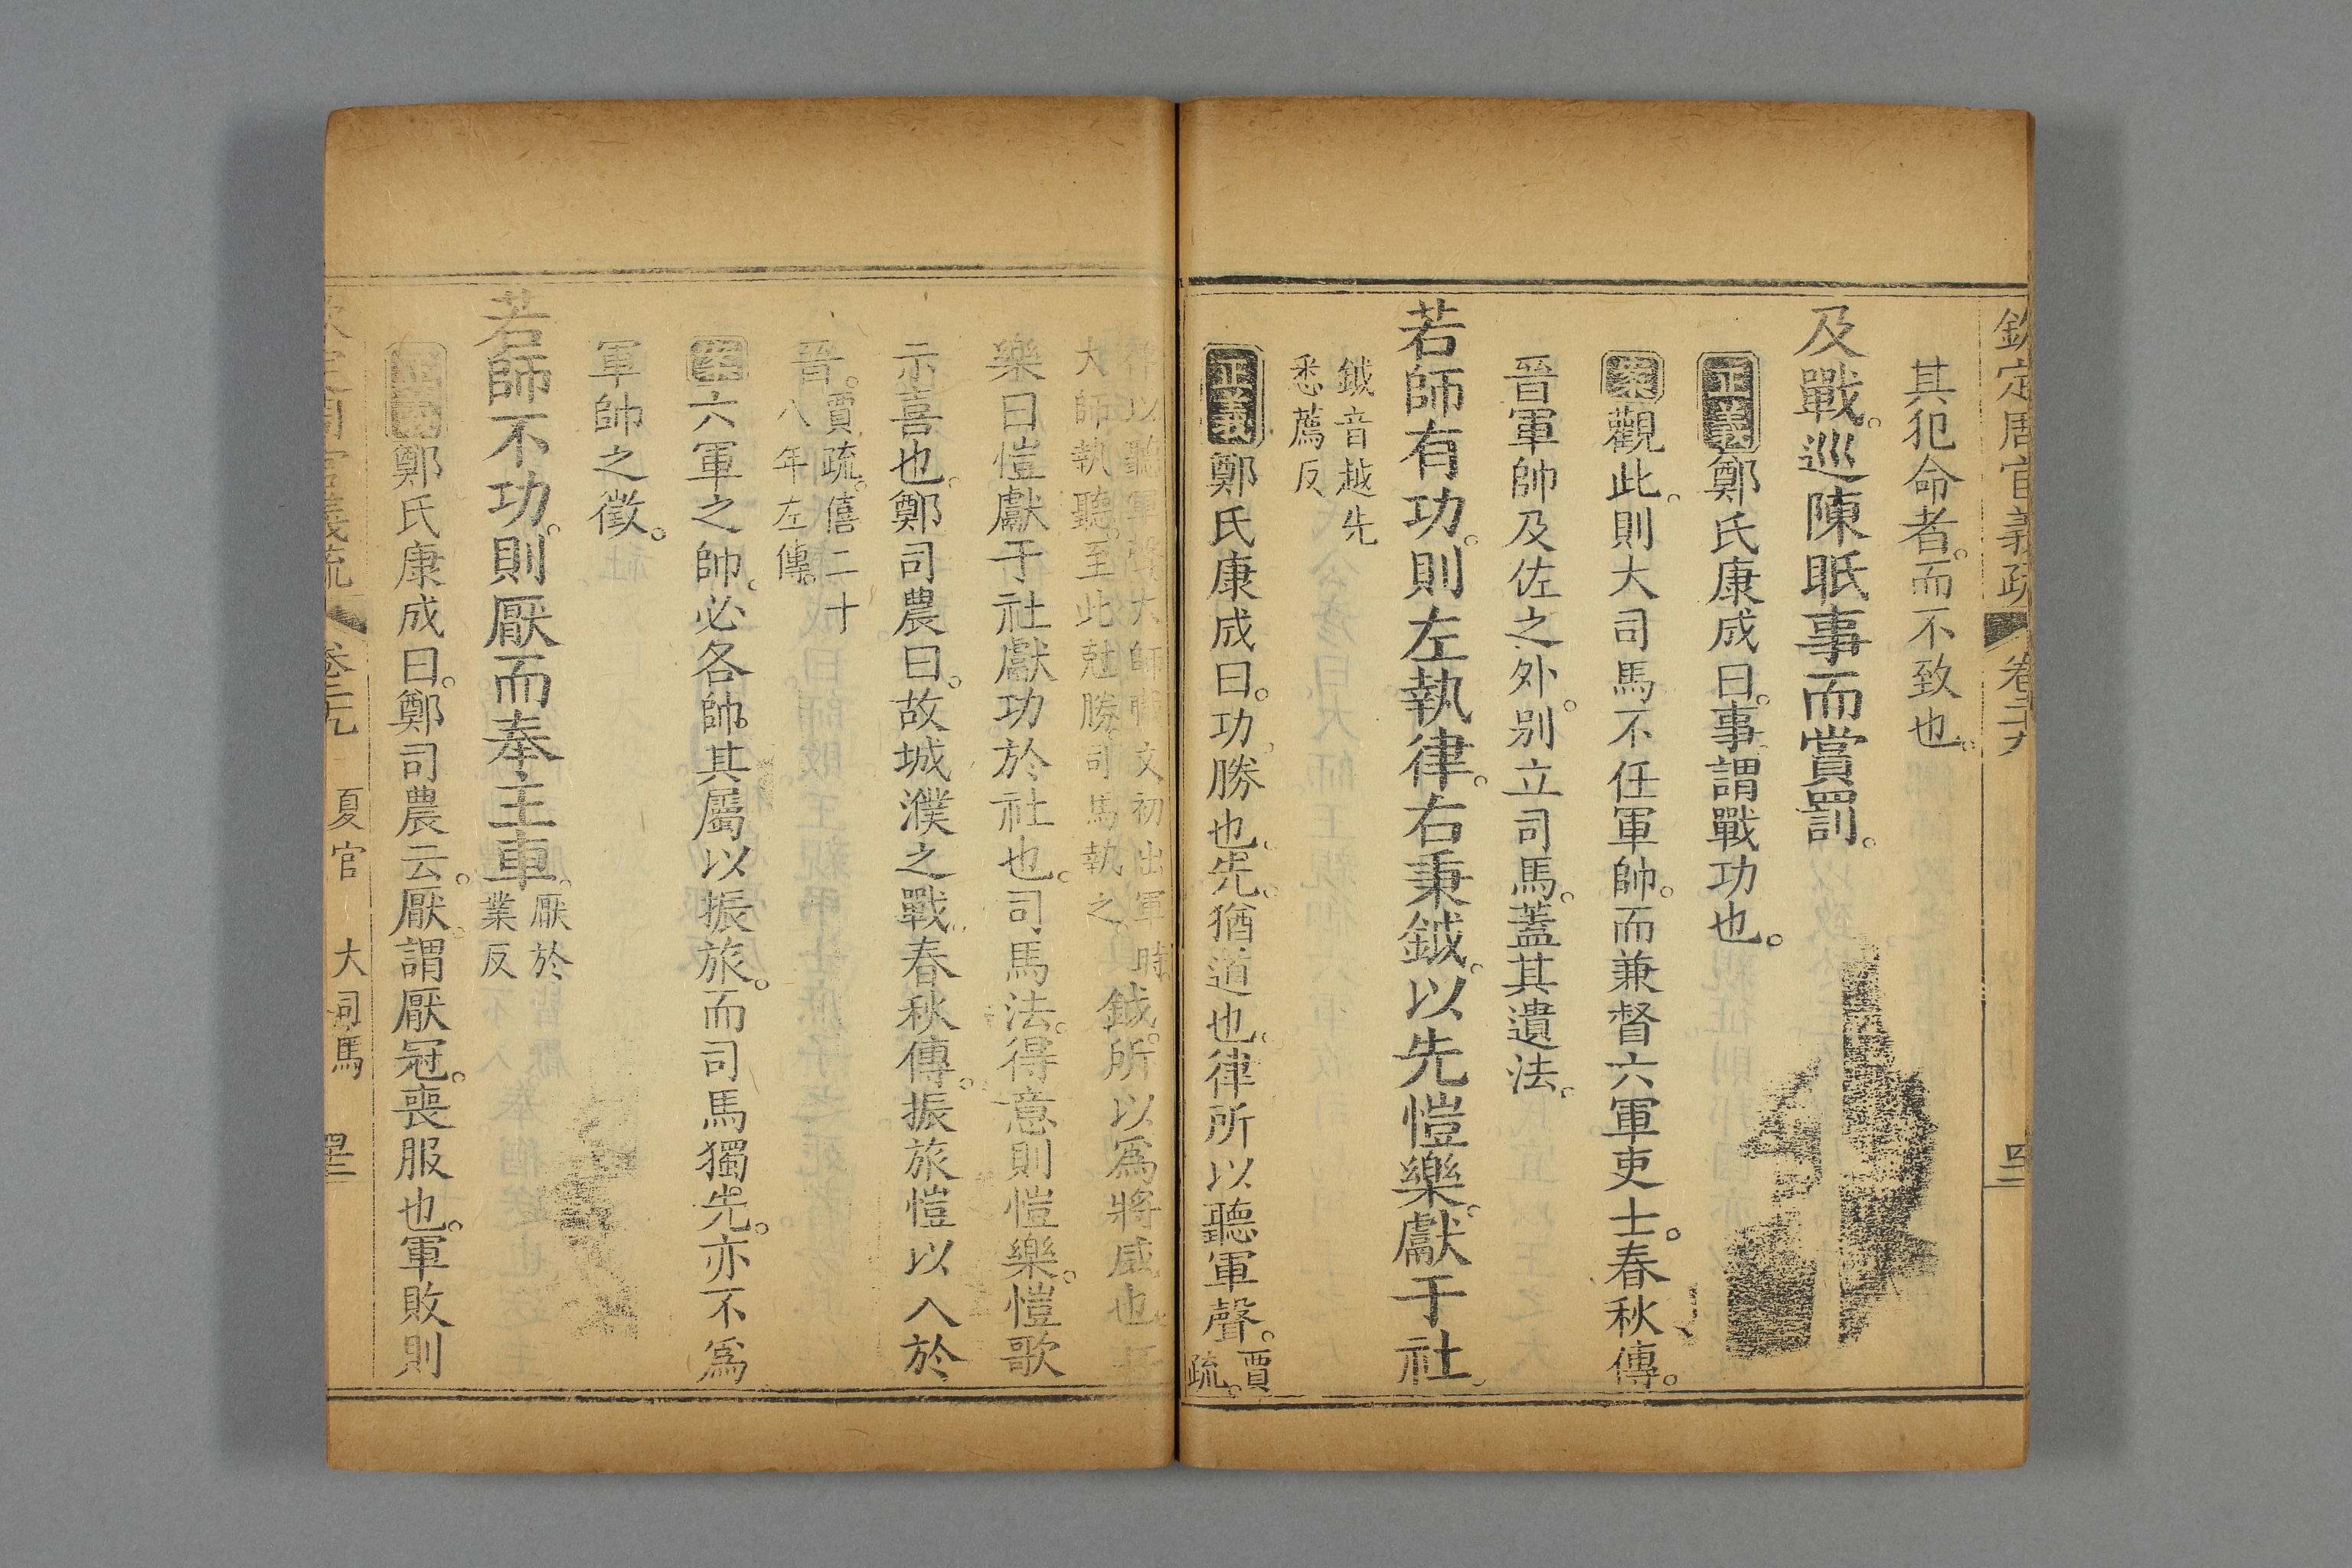 欽定周官義疏 卷二十九 四十二
其犯命者。而不致也。
及戰。巡陳眡事而賞罰。
正義鄭氏康成曰。事謂戰功也。
案觀此。則大司馬不任軍帥。而兼督六軍吏士。春秋傳。
晉軍帥及佐之外。別立司馬。蓋其遺法。
若師有功。則左執律。右秉鉞。以先愷樂。獻于社。
鉞音越先
悉薦反
正義鄭氏康成曰。功勝也。先。猶道也。律所以聽軍聲。賈疏。
律以聽軍聲大師職文初出軍時
大師執聽。至此尅勝。司馬執之。
鉞。所以爲將威也。
樂曰愷獻于社獻功於社也。司馬法。得意則愷樂。愷歌
示喜也。鄭司農曰。故城濮之戰。春秋傳。振旅愷以入於
晉。賈疏。僖二十
八年左傳。
案六軍之帥。必各帥其屬以振旅。而司馬獨先。亦不爲
軍帥之徵。
若師不功。則厭而奉主車。厭於
業反
正義鄭氏康成曰。鄭司農云。厭。謂厭冠。喪服也。軍敗則
欽定周官義疏 卷二十九 夏官 大司馬 四十二